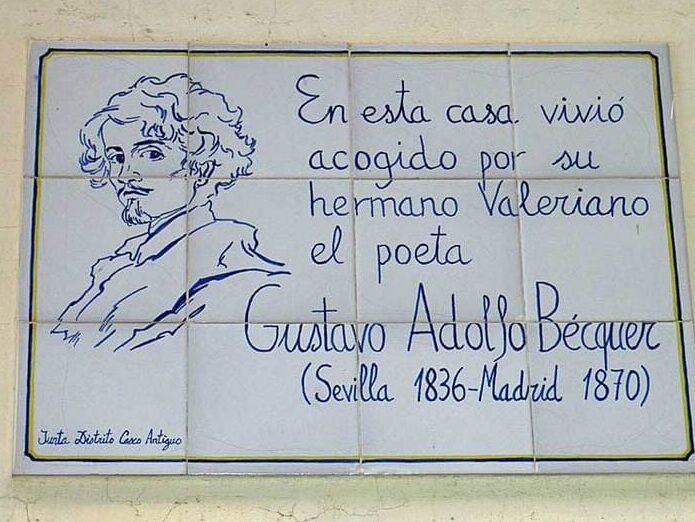 En esta casa vivió
acogido por su
hermano Valeriano
el poeta
Gustavo Adolfo Bécquer
(Sevilla 1836-Madrid 1870)
Junta Distrito Casco Antiguo